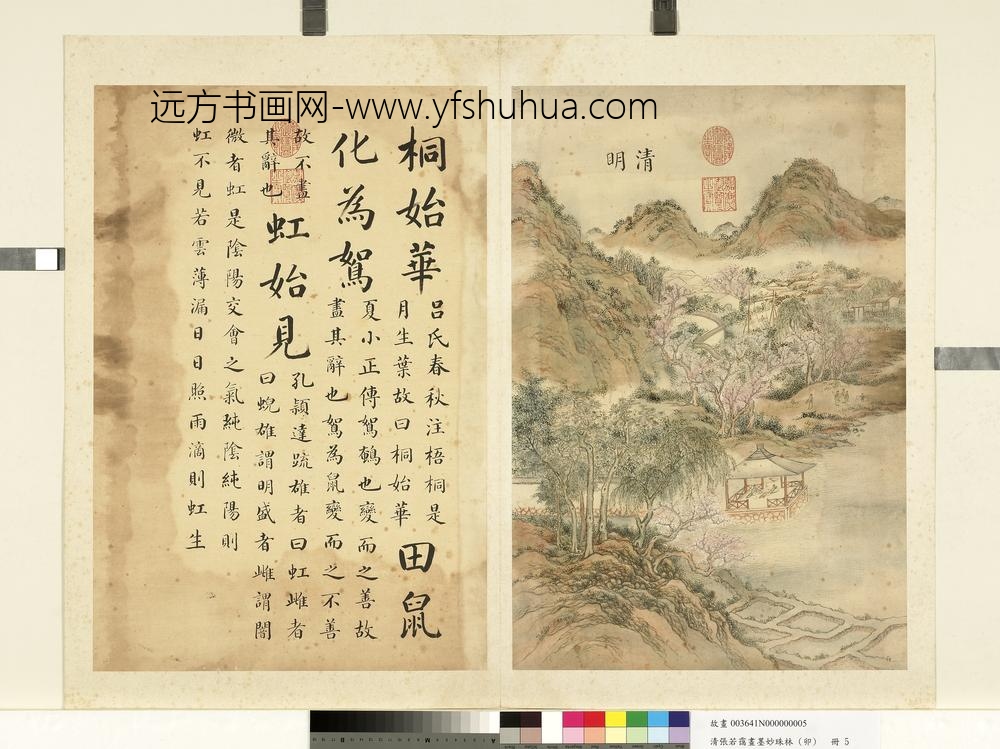 远方书画网-www.yfshuhua.com
清明
桐始華
呂氏春秋注梧桐是
月生葉故曰桐始華
田鼠
化為鴽
夏小正傳鴽鵪也變而之善故
盡其辭也鴽為鼠變而之不善
故不盡
其辭也
虹始見
孔穎達疏雄者曰虹雌者
曰蜺雄謂明盛者雌謂闇
微者虹是陰陽交會之氣純陰純陽則
虹不見若雲薄漏日日照雨滴則虹生
故畫 003641N000000005
清張若靄畫墨妙珠林（卯） 冊 5